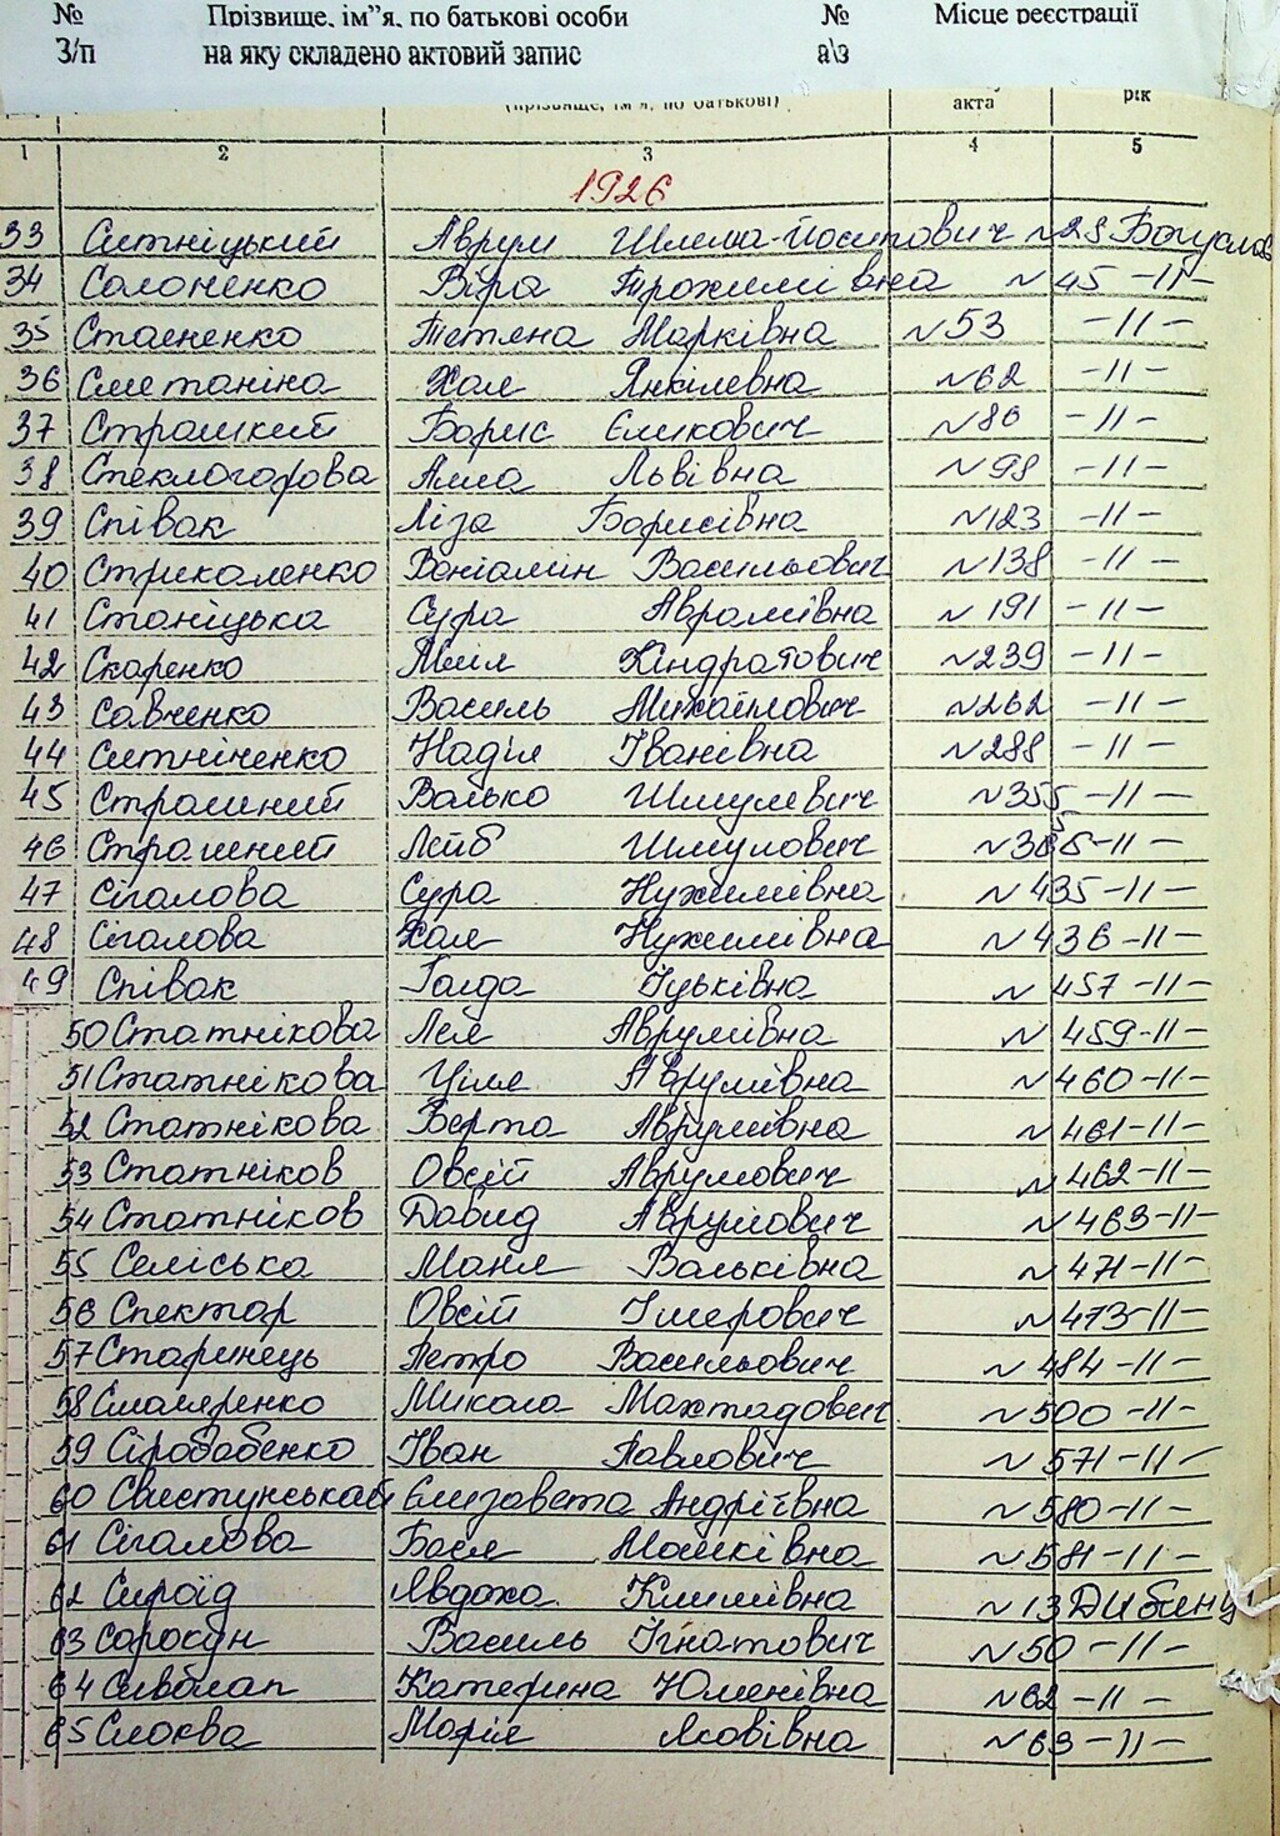 № Прізвище, ім”я, по батькові особи № Місце реєстрації
З/п на яку складено актовий запис а\з
(прізвище, ім'я, по батькові) акта рік
1 2 3 4 5
1926
33 Ситніцький Аврум Шлема-Йосипович №28 Богуслав
34 Солоненко Віра Трохимівна №45 -11-
35 Стасненко Тетяна Марківна №53 -11-
36 Сметаніна Хая Янкілевна №62 -11-
37 Страшний Борис №86 -11-
38 Стеклогорова Алла Львівна №98 -11-
39 Співак Ліза Борисівна №123 -11-
40 Стрикаленко Веніамін Васильович №138 -11-
41 Станіцька Сура Аврамівна №191 -11-
42 Скаренко Кіндратович №239 -11-
43 Савченко Василь Михайлович №262 -11-
44 Ситніченко Надія Іванівна №288 -11-
45 Страшний Валько Шмулевич №355 -11-
46 Страшний Лейб Шмулович -11-
47 Сігалова Сура Нухимівна №435 -11-
48 Сігалова Хая Нухимівна №436 -11-
49 Співак Голда Іцьківна №457 -11-
50 Статнікова Лея Аврумівна №459 -11-
51 Статнікова Ціля Аврумівна №460 -11-
52 Статнікова Берта Аврумівна №461 -11-
53 Статніков Овсій Аврумович №462 -11-
54 Статніков Давид Аврумович №463 -11-
55 Селіська Маня Вальківна №471 -11-
56 Спектор Овсій Імерович №473 -11-
57 Старинець Петро Васильович №484 -11-
58 Смаляренко Микола №500 -11-
59 Сіробабенко Іван Павлович №571 -11-
60 Свистунська Єлизавета Андріївна №580 -11-
61 Сігалова Бася Мошківна №581 -11-
62 Сироїд Явдоха Климівна №13 Дибинці
63 Сорокун Василь Ігнатович №50 -11-
64 Катерина Юменівна №62 -11-
65 Смоква Марія Яковівна №63 -11-